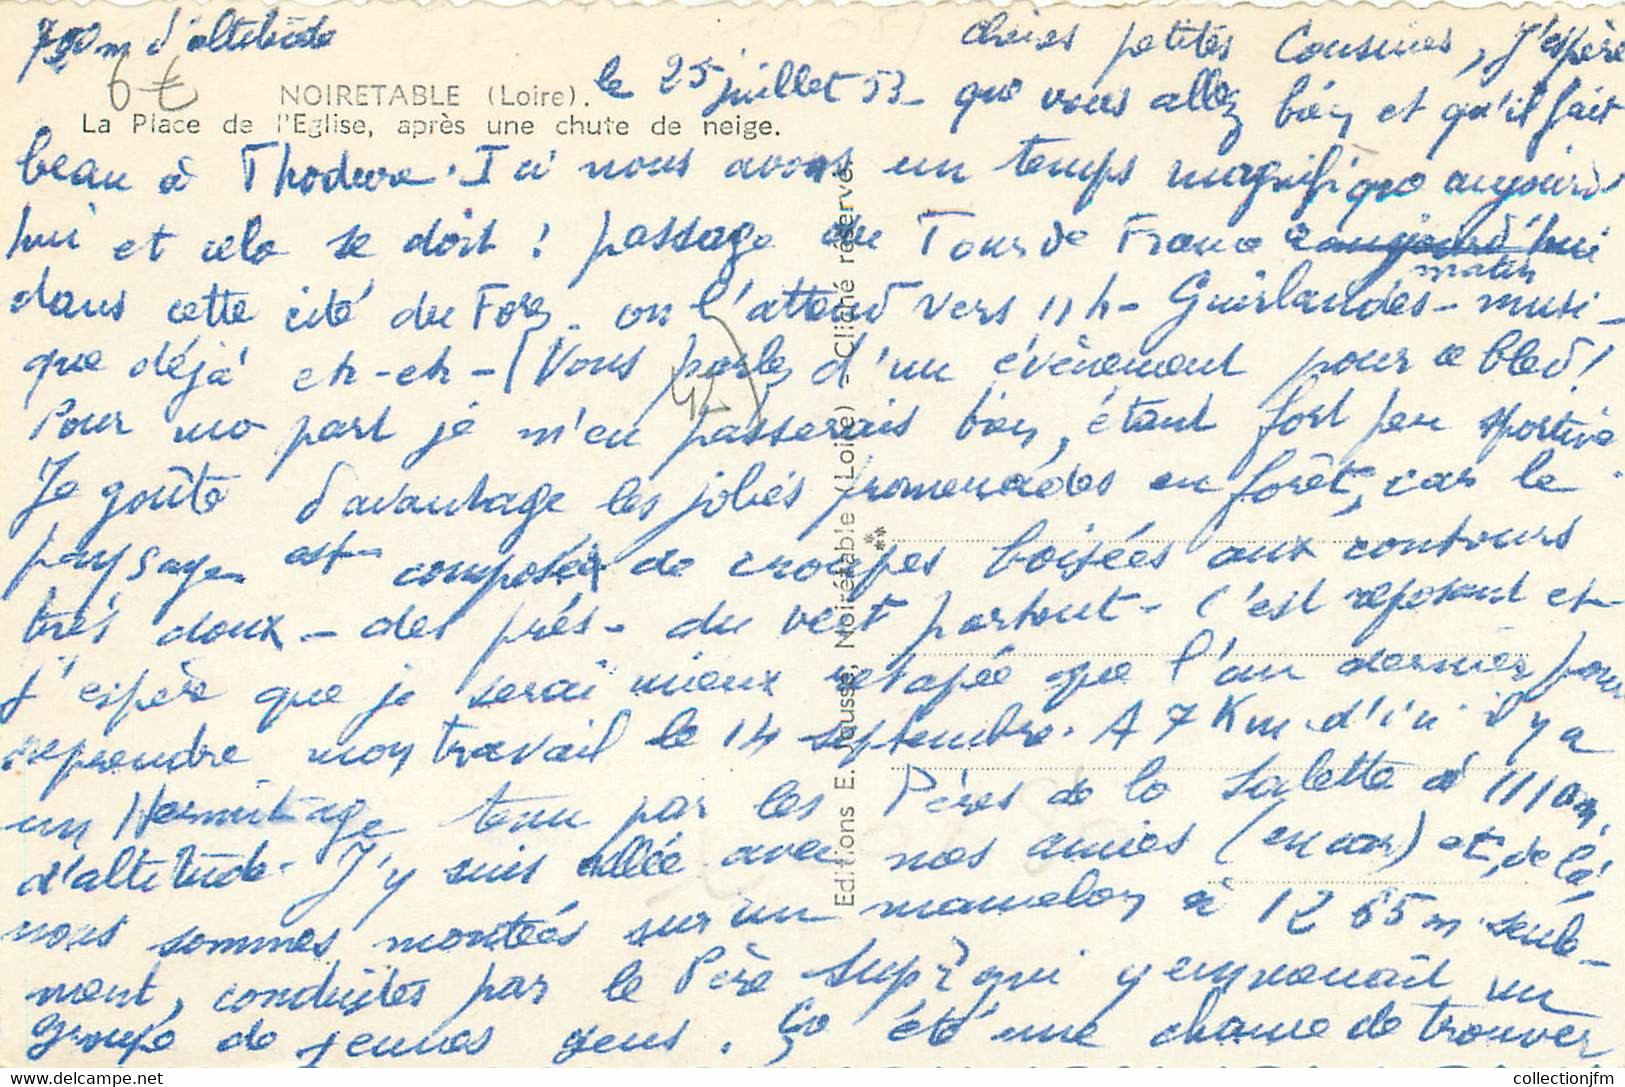 750m d'altitude
chères petites Cousines, J'espère
6€
NOIRETABLE (Loire).
le 25 juillet 53 - que vous allez bien et qu'il fait
La Place de l'Eglise, après une chute de neige.
beau à Thodure. Ici nous avons un temps magnifique aujourd'
hui et cela se doit ! passage du Tour de France aujourd'hui
matin
dans cette cité du Forez - on l'attend vers 11 h - Guirlandes - musi-
que déjà etc - etc - (Vous parlez d'un évènement pour ce bled !
Pour mo part je m'en passerais bien, étant fort peu sportive
Je goûte d'avantage les jolies promenades en forêt, car le
paysage est composé de croupes boisées aux contours
très doux - des prés - du vert partout - C'est reposant et
j'espère que je serai mieux retapée que l'an dernier pour
reprendre mon travail le 14 septembre. A 7 Km d'ici il y a
un Hermitage tenu par les Pères de la Salette à 1110m,
d'altitude. J'y suis allée avec nos amies (en car) et, de là,
nous sommes montées sur un mamelon à 1265m seule-
ment, conduites par le Père Supr qui y emmenait un
groupe de jeunes gens. Ça été une chance de trouver
Editions E. Jousse, Noirétable (Loire) - Cliché réservé.
collectionjfm